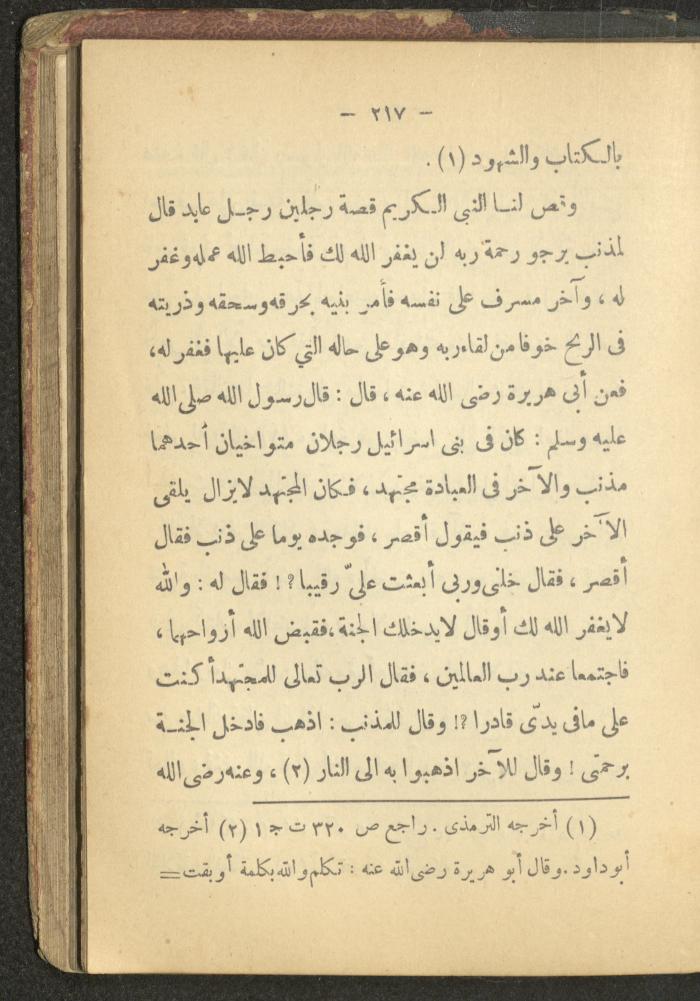 — ٢١٧ —
بالكتاب والشهود (١) .
وقص لنا النبي الكريم قصة رجلين رجل عابد قال
لمذنب يرجو رحمة ربه لن يغفر الله لك فأحبط الله عمله وغفر
له ، وآخر مسرف على نفسه فأمر بنيه بحرقه وسحقه وذريته
فى الريح خوفا من لقاء ربه وهو على حاله التي كان عليها فغفر له،
فعن أبى هريرة رضى الله عنه ، قال : قال رسول الله صلى الله
عليه وسلم : كان فى بنى اسرائيل رجلان متواخيان أحدهما
مذنب والآخر فى العبادة مجتهد ، فكان المجتهد لايزال يلقى
الآخر على ذنب فيقول أقصر ، فوجده يوما على ذنب فقال
أقصر ، فقال خلنى وربى أبعثت علىّ رقيبا ?! فقال له : والله
لا يغفر الله لك أو قال لا يدخلك الجنة ، فقبض الله أزواحهما ،
فاجتمعا عند رب العالمين ، فقال الرب تعالى للمجتهد أكنت
على مافى يدىّ قادرا ?! وقال للمذنب : اذهب فادخل الجنـة
برحمتى ! وقال للآخر اذهبوا به الى النار (٢) ، وعنه رضى الله
(١) أخرجه الترمذى . راجع ص ٣٢٠ ت ج ١ (٢) أخرجه
أبوداود . وقال أبو هريرة رضى الله عنه : تكلم والله بكلمة أوبقت =